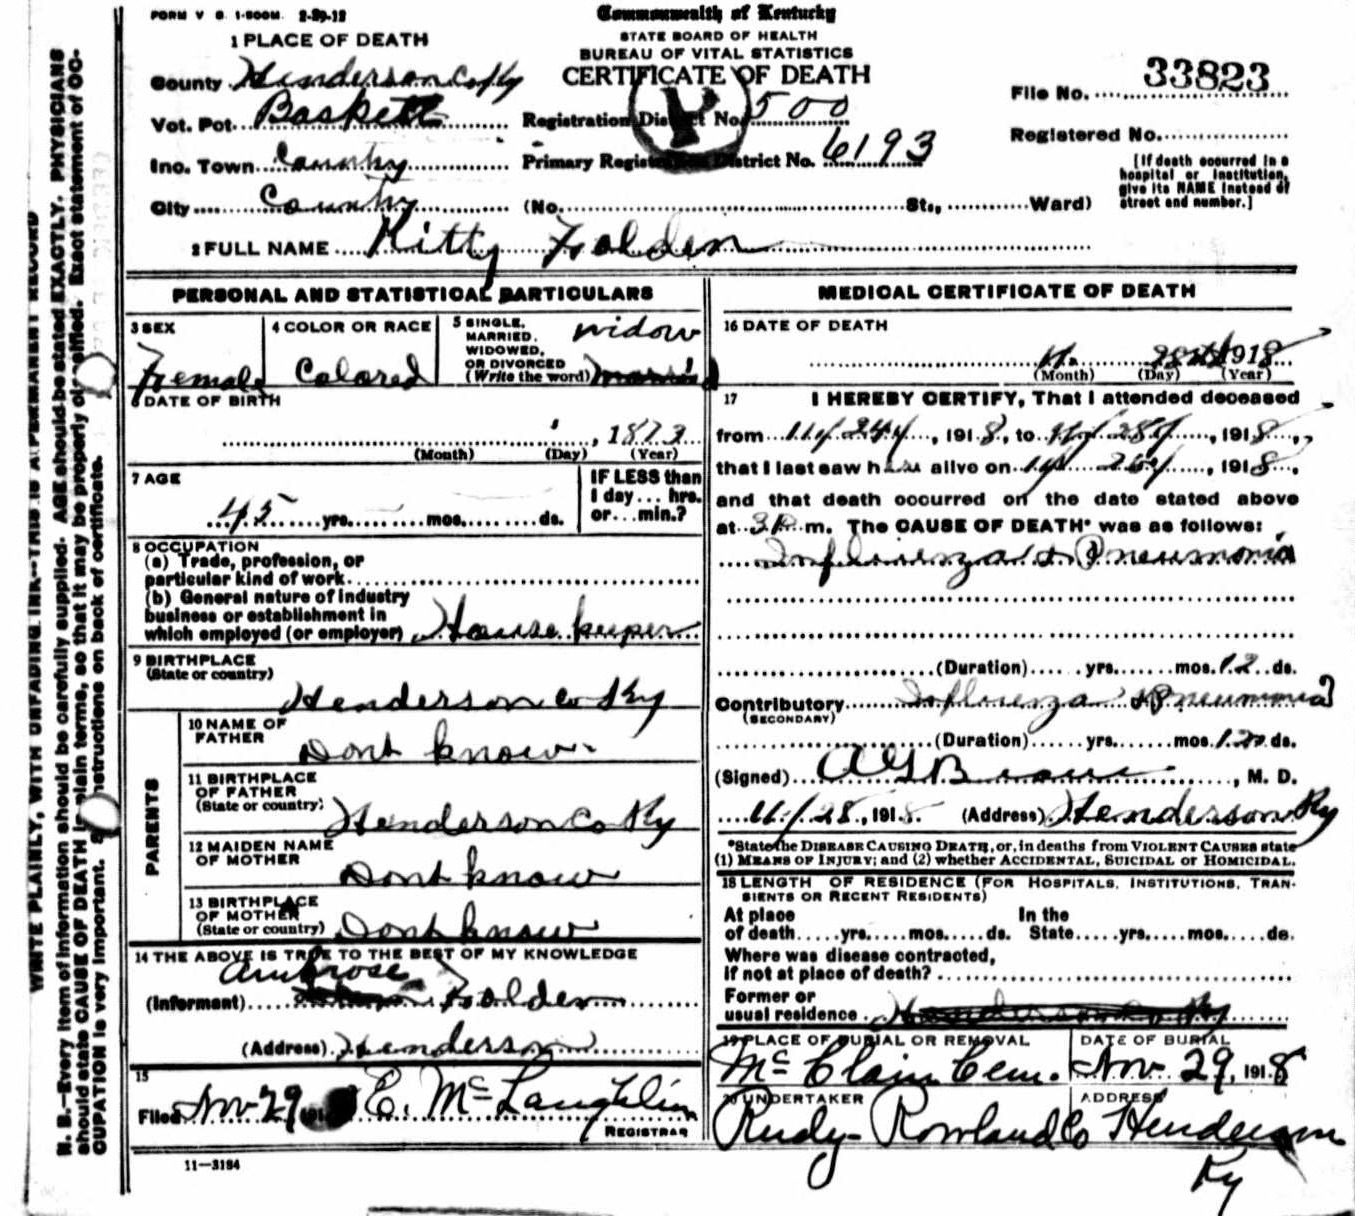 FORM V S. 1-500M. 2-29-12
Commonwealth of Kentucky
STATE BOARD OF HEALTH
BUREAU OF VITAL STATISTICS
CERTIFICATE OF DEATH
1 PLACE OF DEATH
County Henderson Co Ky
Vot. Pct. Baskett
Inc. Town Country
City Country
Registration District No. 500
Primary Registration District No. 6193
(No. St., Ward)
File No. 33823
Registered No.
[If death occurred in a
hospital or institution,
give its NAME instead of
street and number.]
2 FULL NAME Kitty Folden
PERSONAL AND STATISTICAL PARTICULARS
3 SEX
Female
4 COLOR OR RACE
Colored
5 SINGLE,
MARRIED,
WIDOWED,
OR DIVORCED
(Write the word)
widow
6 DATE OF BIRTH
, 1873
(Month) (Day) (Year)
7 AGE
45 yrs. mos. ds.
IF LESS than
1 day... hrs.
or...min.?
8 OCCUPATION
(a) Trade, profession, or
particular kind of work
(b) General nature of industry
business or establishment in
which employed (or employer) House keeper
9 BIRTHPLACE
(State or country)
Henderson Co Ky
PARENTS
10 NAME OF
FATHER
Dont know
11 BIRTHPLACE
OF FATHER
(State or country)
Henderson Co Ky
12 MAIDEN NAME
OF MOTHER
Dont know
13 BIRTHPLACE
OF MOTHER
(State or country)
Dont know
14 THE ABOVE IS TRUE TO THE BEST OF MY KNOWLEDGE
Ambrose
(Informant) Folden
(Address) Henderson
15
Filed Nov 29 191 E. McLaughlin
REGISTRAR
11-3184
MEDICAL CERTIFICATE OF DEATH
16 DATE OF DEATH
11 28th 1918
(Month) (Day) (Year)
17 I HEREBY CERTIFY, That I attended deceased
from 11/24/, 1918, to 11/28/, 1918,
that I last saw h alive on 11/ , 1918,
and that death occurred on the date stated above
at 3 P m. The CAUSE OF DEATH* was as follows:
Influenza & Pneumonia
(Duration) yrs. mos. 12 ds.
Contributory Influenza & Pneumonia
(SECONDARY)
(Duration) yrs. mos. 12 ds.
(Signed) A G , M. D.
11/28, 1918. (Address) Henderson Ky
*State the DISEASE CAUSING DEATH, or, in deaths from VIOLENT CAUSES state
(1) MEANS OF INJURY; and (2) whether ACCIDENTAL, SUICIDAL or HOMICIDAL.
18 LENGTH OF RESIDENCE (FOR HOSPITALS, INSTITUTIONS, TRAN-
SIENTS OR RECENT RESIDENTS)
At place In the
of death yrs. mos. ds. State yrs. mos. ds.
Where was disease contracted,
if not at place of death?
Former or
usual residence Henderson Co Ky
19 PLACE OF BURIAL OR REMOVAL
McClain Cem.
DATE OF BURIAL
Nov 29, 1918
20 UNDERTAKER
Rudy-Rowland Co
ADDRESS
Henderson
Ky
WRITE PLAINLY, WITH UNFADING INK--THIS IS A PERMANENT RECORD
N. B.--Every item of information should be carefully supplied. AGE should be stated EXACTLY. PHYSICIANS
should state CAUSE OF DEATH in plain terms, so that it may be properly classified. Exact statement of OC-
CUPATION is very important. See instructions on back of certificate.